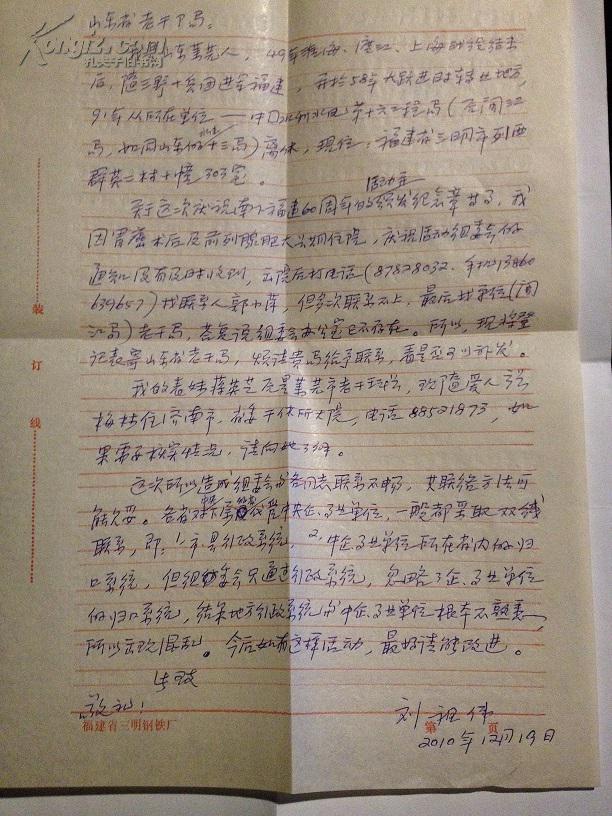 山东省老干部局:
我是山东莱芜人,49年淮海、渡江、上海战役结束
后,随三野十兵团进军福建,并于58年大跃进时转业地方,
91年从所在单位——中国水利水电第十六工程局(原闽江
局,如同山东的十三局)离休,现住:福建省三明市列西
群英二村十幢303室。
关于这次庆祝南下福建60周年活动的颁发纪念章等事,我
因胃癌术后及前列腺肥大长期住院,庆祝活动组委会的
通知没有及时收到,出院后打电话(87828032、手机13860
639657)找联系人郭小萍,但多次联系不上,最后找单位(闽
江局)老干局,答复说组委会办公室已不存在。所以,现将登
记表寄山东省老干局,烦请贵局给予联系,看是否可以补发。
我的表妹蒋英芝原是莱芜市老干部,现随爱人
梅枝住济南市,省委干休所大院,电话88521873,如
果需要核实情况,请向她了解。
这次所以造成组委会与各同志联系不畅,其联络方法可
能欠妥。各省对下属中央企、事业单位,一般都采取双线
联系,即:1、市县行政系统,2、中企、事业单位所在省内的归
口系统,但组委会只通过行政系统,忽略了企、事业单位
的归口系统,结果地方行政系统与中企、事业单位根本不熟悉,
所以出现混乱。今后如有这样活动,最好请能改进。
此致
敬礼!
刘祖伟
2010年12月19日
福建省三明钢铁厂
第 页
装
订
线
孔夫子旧书网